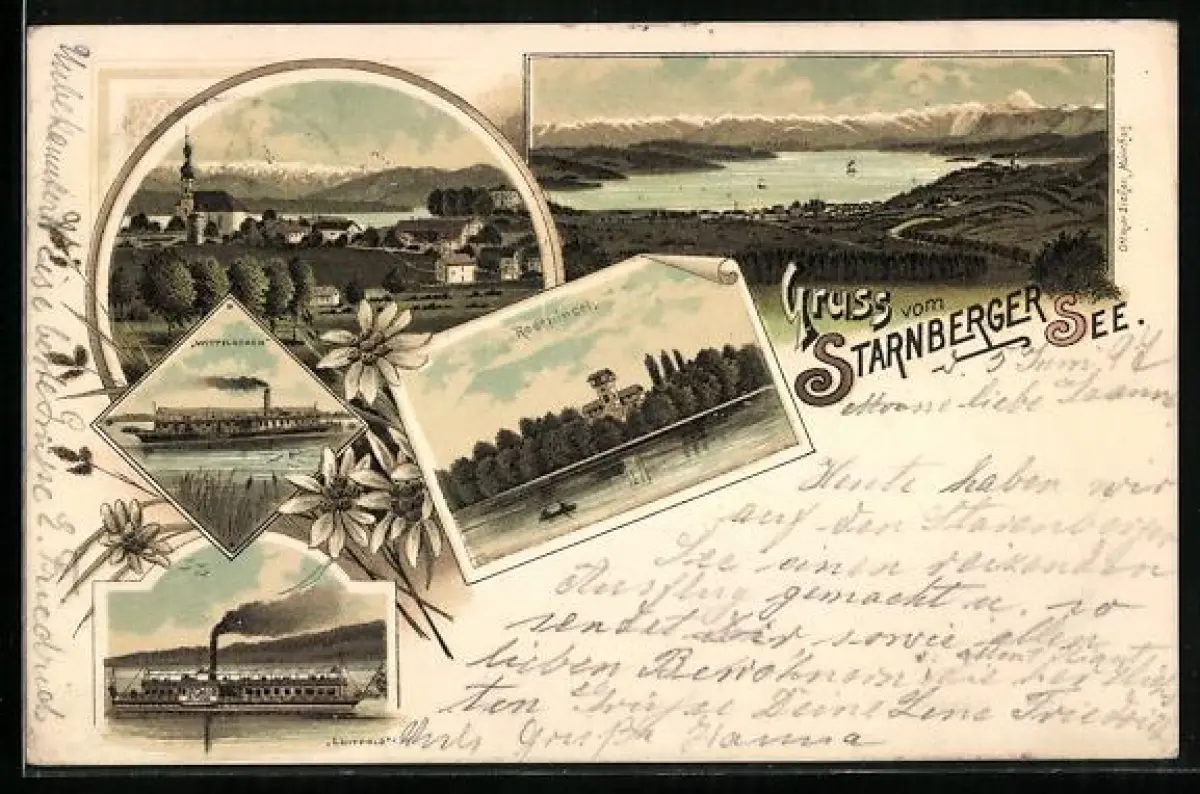 Gruss vom
STARNBERGER SEE.
Ottmar Zieher, München
Roseninsel.
"WITTELSBACH"
"LUITPOLD"
d. 5 Juni 97
Meine liebe
Heute haben wir
auf den Starnberger
See einen reizenden
Ausflug gemacht u. so
sendet Dir sowie allen
lieben Bewohnern
ten Grüße Deine Lene
Viele Grüße Hanna
Unbekannterweise Grüße L. Friedrich